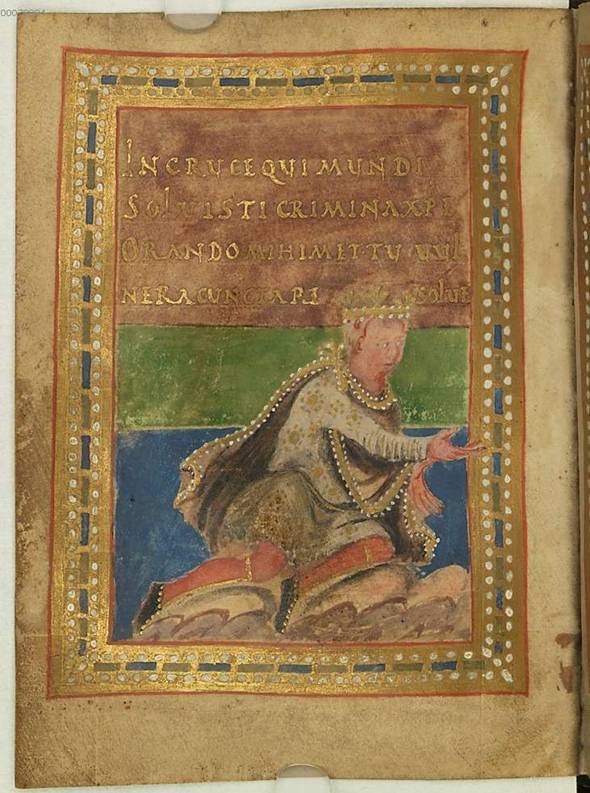 INCRUCEQUIMUNDI
SOLUISTICRIMINAXPE
ORANDOMIHIMETTUUUL
NERACUNCTARE solue